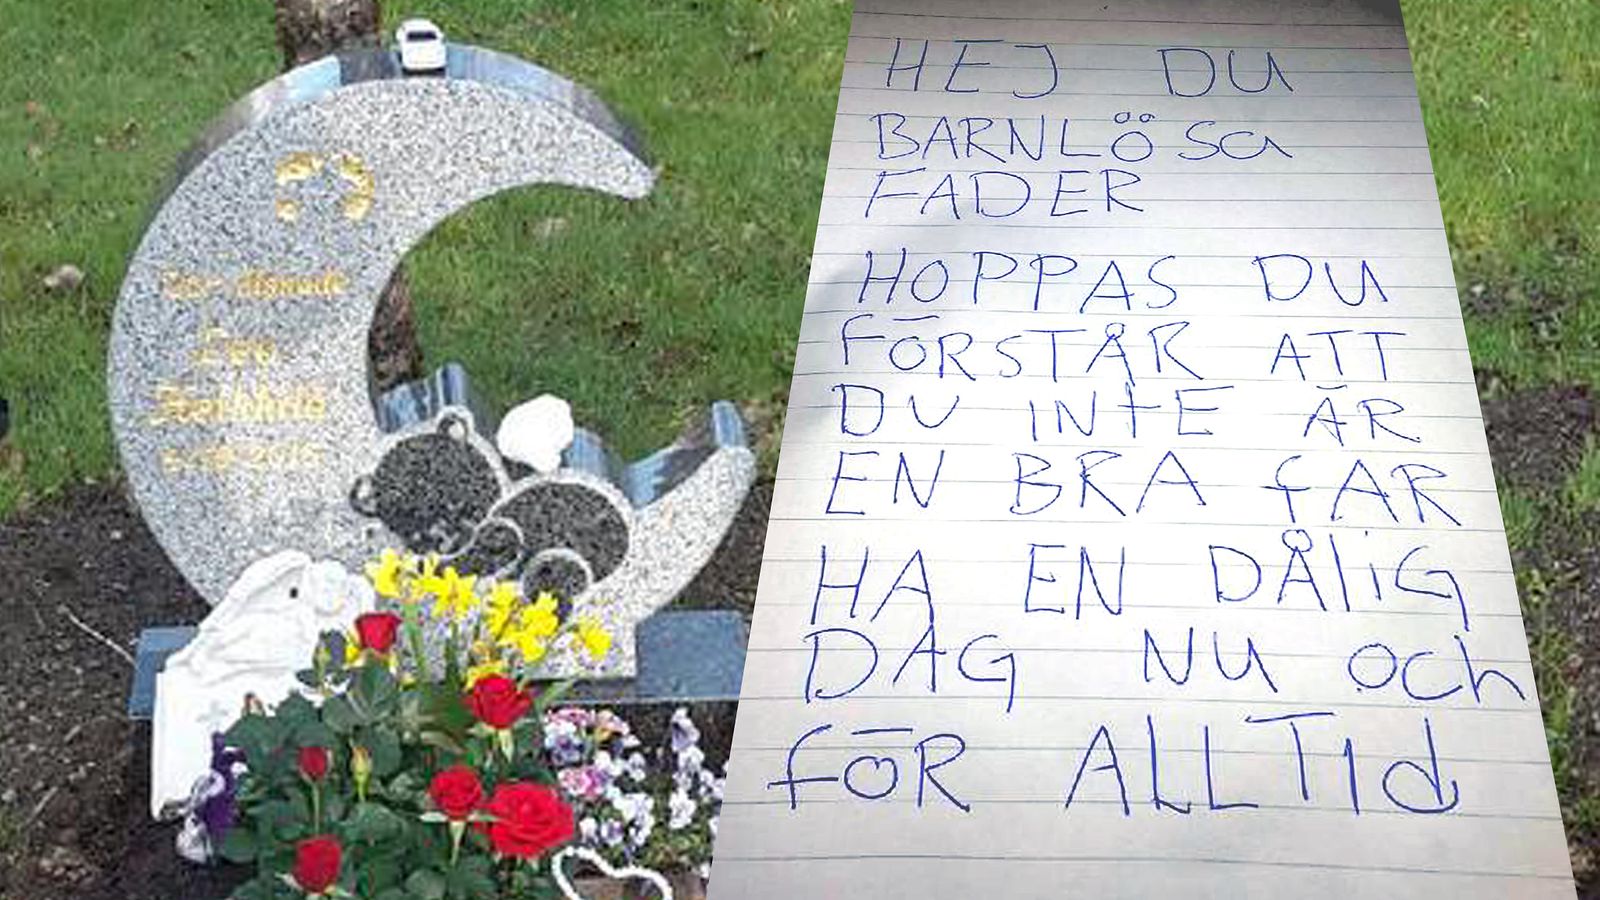 HEJ DU
BARNLÖSa
FADER
HOPPAS DU
FÖRSTÅR ATT
DU INtE ÄR
EN BRA fAR
HA EN DÅliG
DAG NU och
föR ALLTId